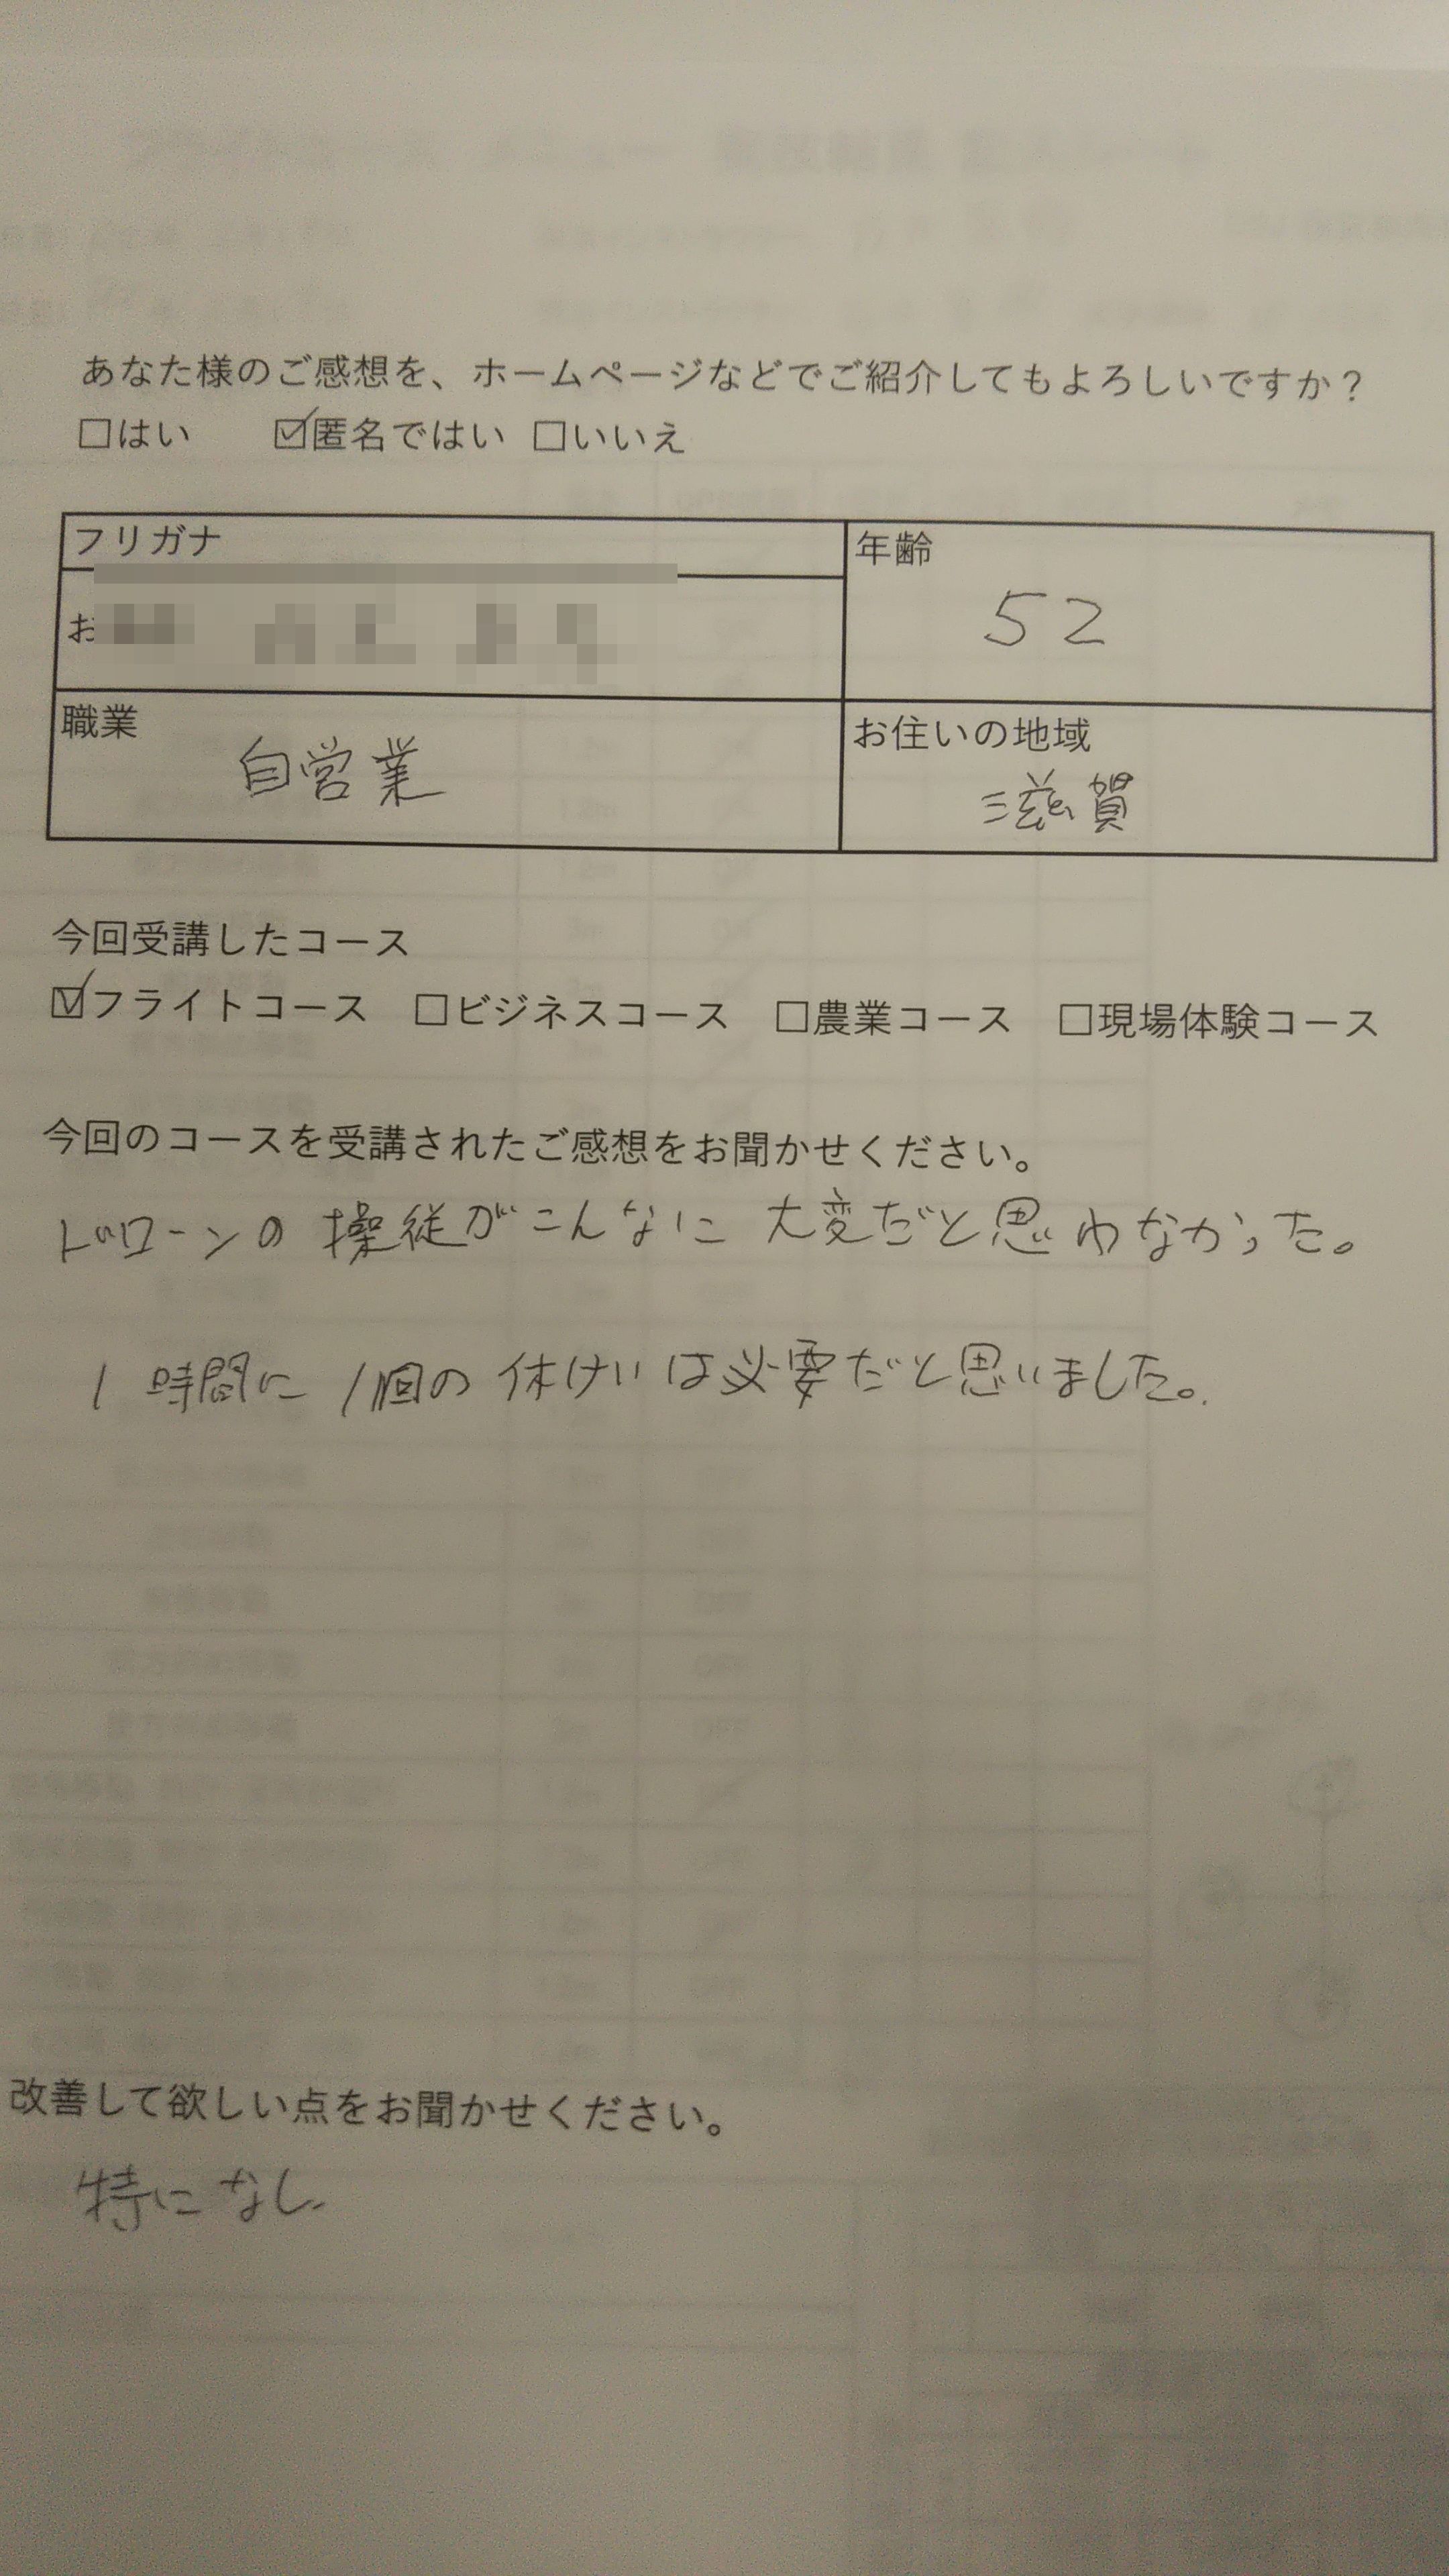 あなた様のご感想を、ホームページなどでご紹介してもよろしいですか？
□はい ☑匿名ではい □いいえ
フリガナ
年齢
お
52
職業
お住いの地域
自営業
滋賀
今回受講したコース
☑フライトコース □ビジネスコース □農業コース □現場体験コース
今回のコースを受講されたご感想をお聞かせください。
ドローンの操従がこんなに大変だと思わなかった。
1時間に1回の休けいは必要だと思いました。
改善して欲しい点をお聞かせください。
特になし